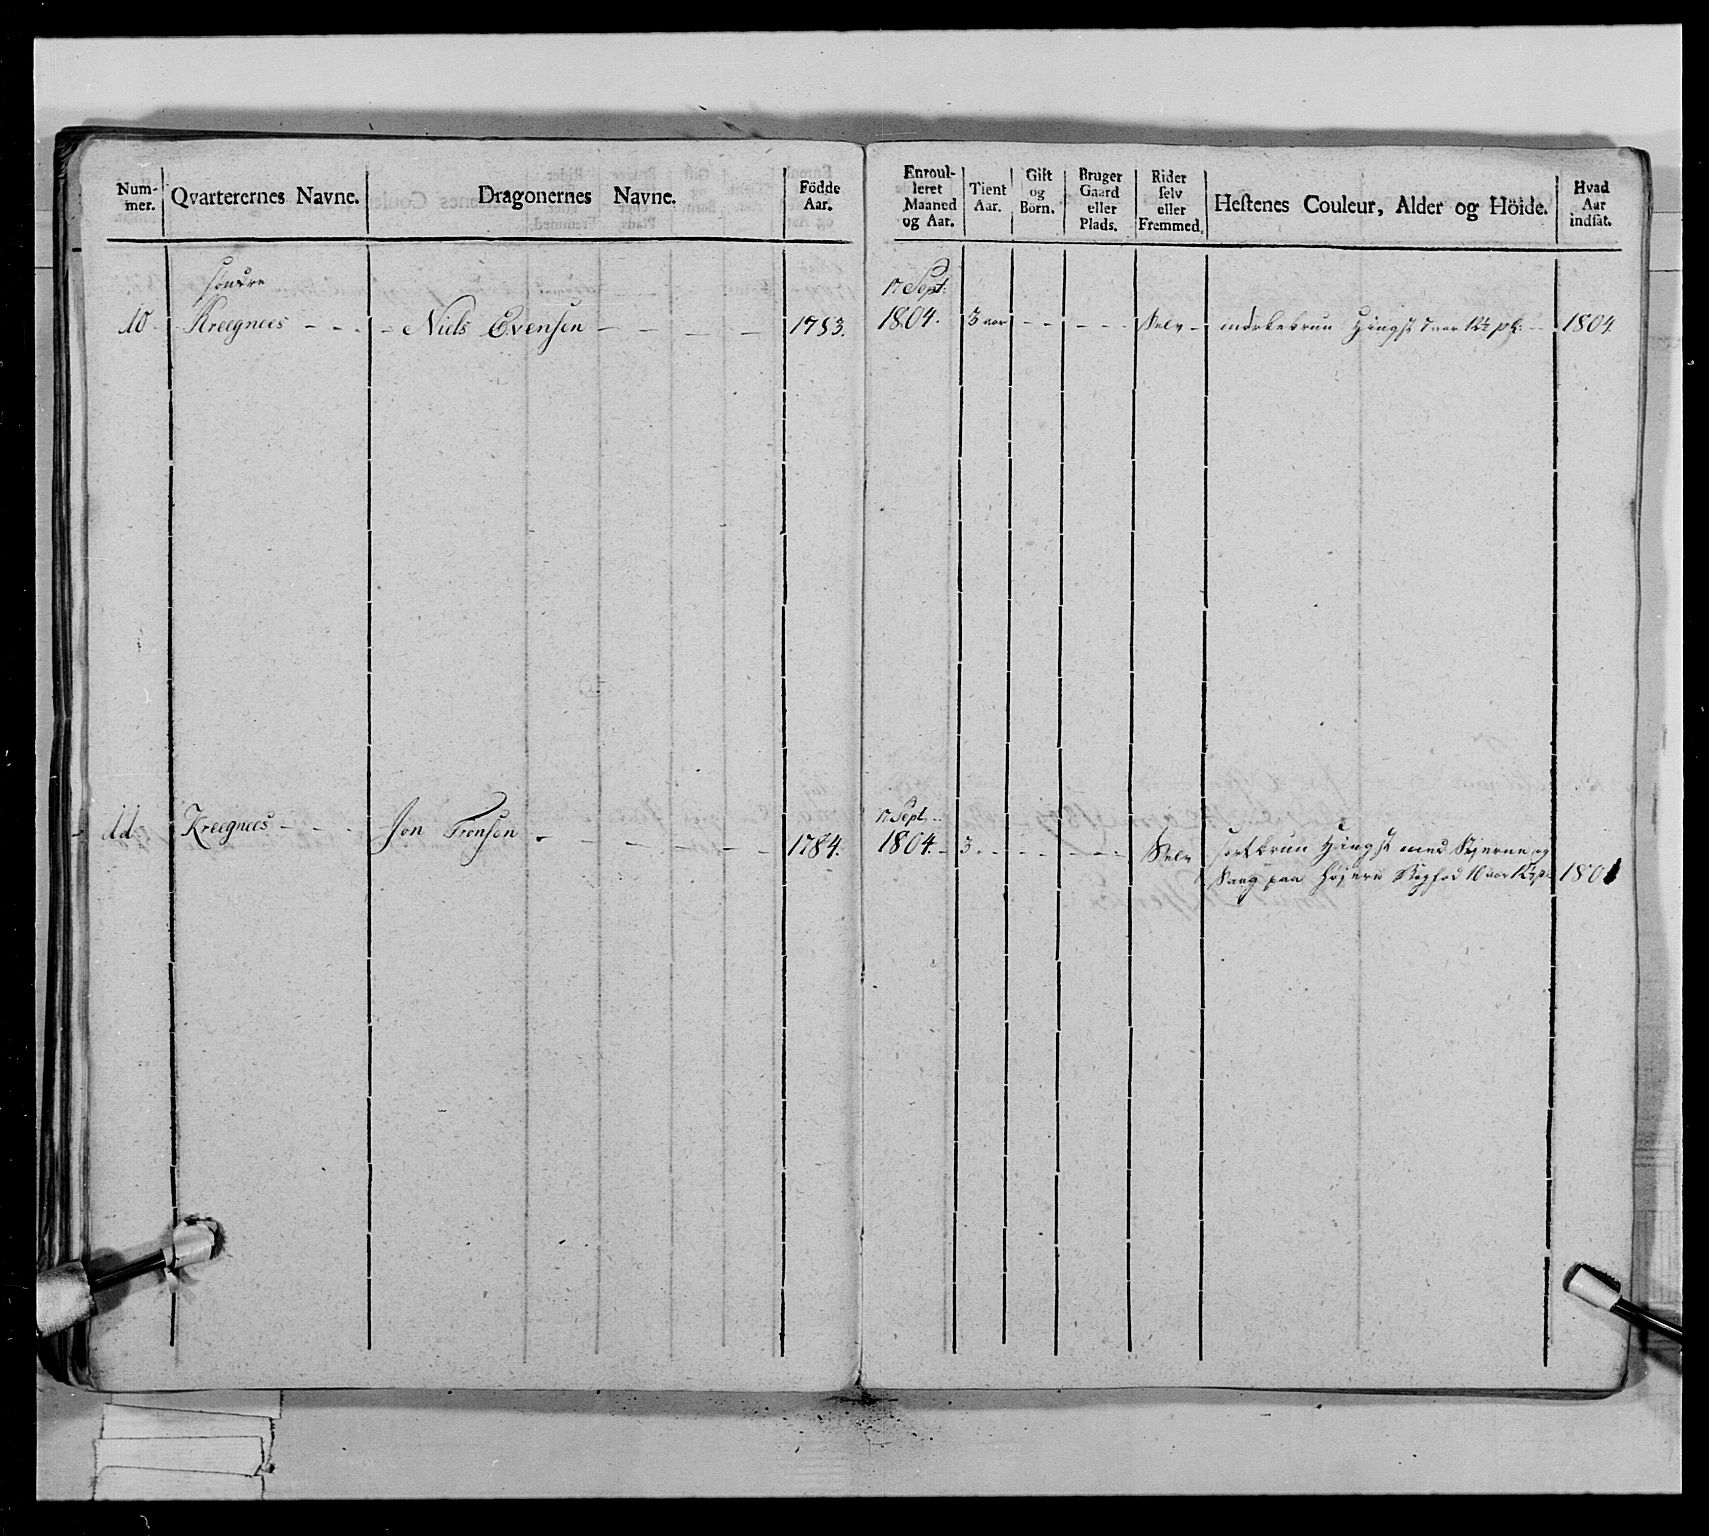 Num-
mer.
Qvarterernes Navne.
Dragonernes Navne.
Födde
Aar.
Enroul-
leret
Maaned
og Aar.
Tient
Aar.
Gift
og
Börn.
Bruger
Gaard
eller
Plads.
Rider
selv
eller
Fremmed.
Hestenes Couleur, Alder og Höide.
Hvad
Aar
indsat.
søndre
10. Kreegnees - - - - Niels Evensen - - - - - 1783.
17 Sept:
1804. 3 aar - - - - - Selv - mørkebrun Hingst 7 aar 12½ - - 1804.
Kreegnees - - - Jon Tronsen - - - - - - 1784.
17 Sept: -
1804. - 3 - - - - - - - Selv sortbrun Hingst med Stjerne og
paa højere Bagfod 10 aar 180